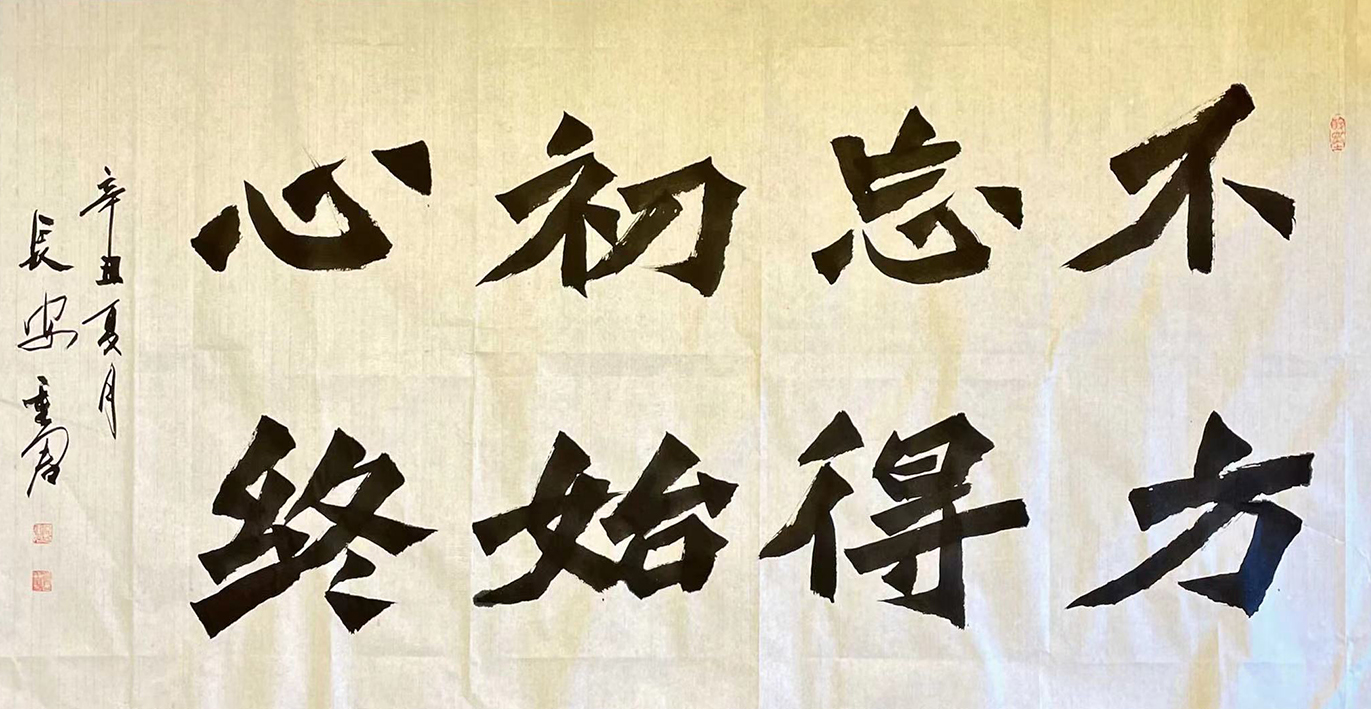 不忘初心
方得始终
辛丑夏月
長安